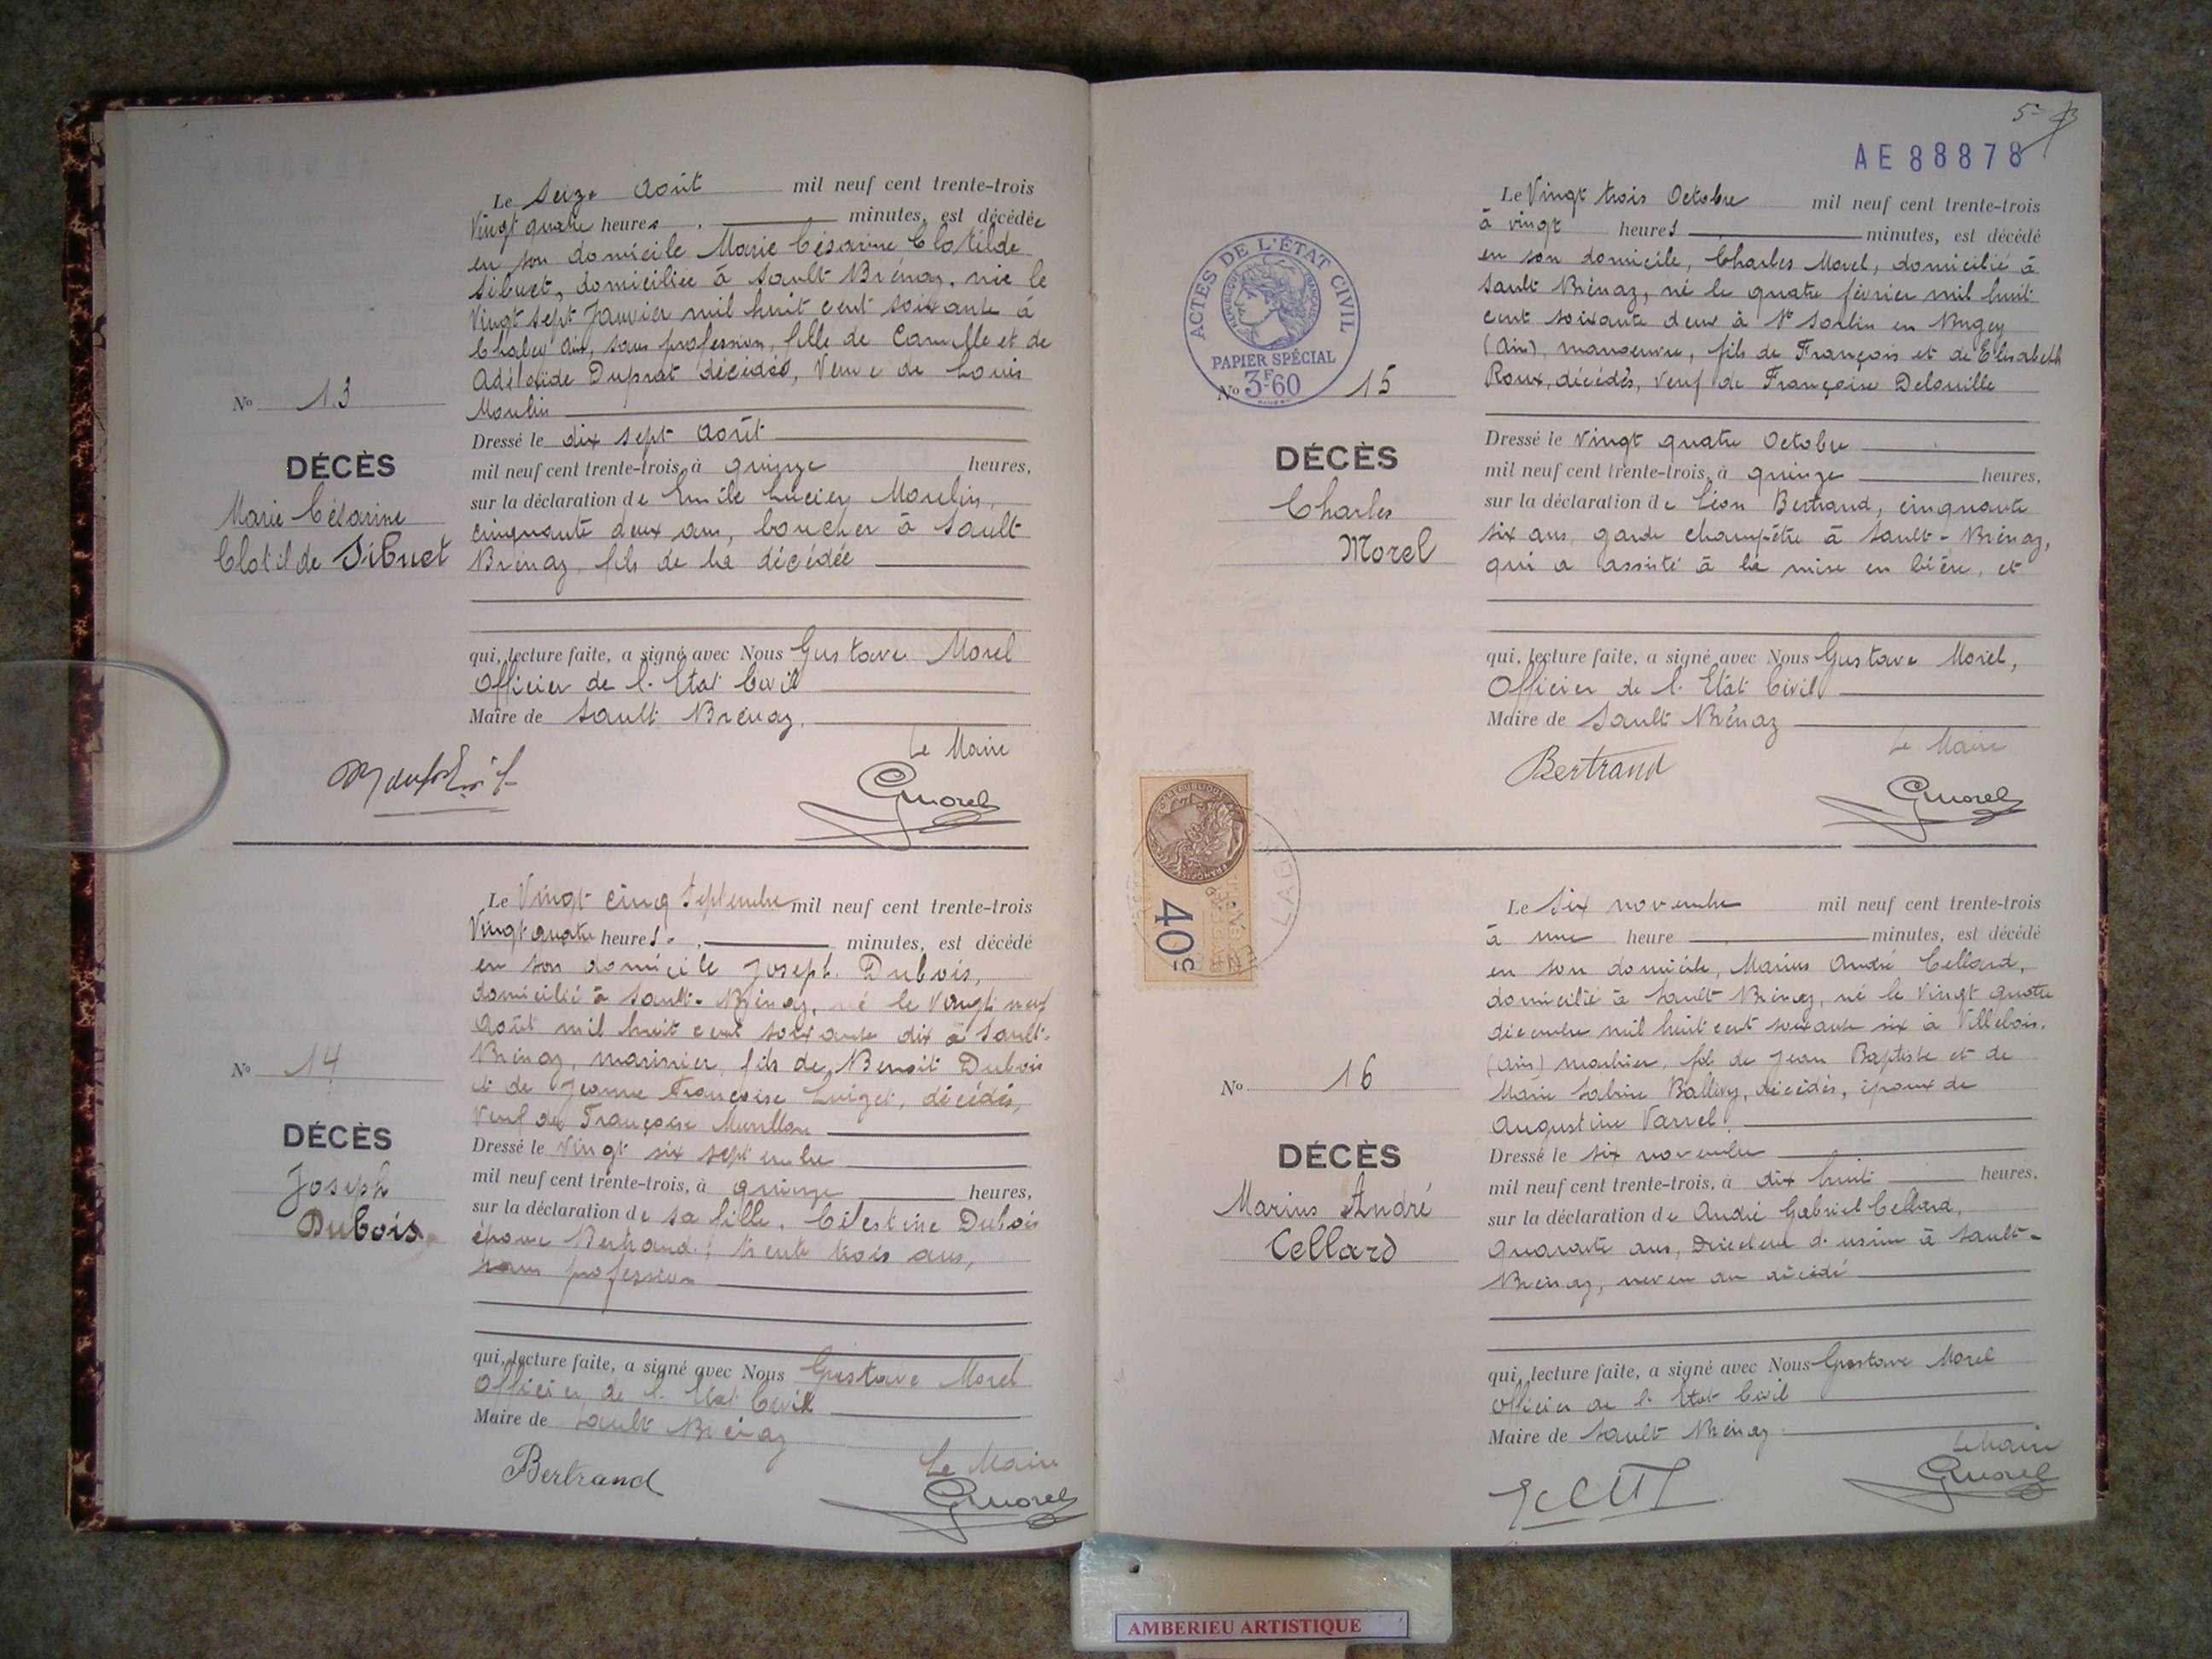 Le Seize Août mil neuf cent trente-trois
Vingt quatre heures, minutes, est décédée
en son domicile Marie Césarine Clotilde
Sibuet, domiciliée à Sault Brénaz, née le
Vingt sept Janvier mil huit cent soixante à
Chaley Ain, sans profession, fille de Camille et de
Adélaïde Duprat décédés, Veuve de Louis
Moulin
Nº 13
DÉCÈS
Marie Césarine
Clotilde Sibuet
Dressé le dix sept Août
mil neuf cent trente-trois, à quinze heures,
sur la déclaration de Emile Lucien Moulin,
cinquante deux ans, boucher à Sault
Brénaz, fils de la décédée
qui, lecture faite, a signé avec Nous Gustave Morel
Officier de l'Etat Civil
Maire de Sault Brénaz.
Le Maire
GMorel
Le Vingt cinq Septembre mil neuf cent trente-trois
Vingt quatre heures, minutes, est décédé
en son domicile Joseph Dubois,
domicilié à Sault-Brénaz, né le Vingt neuf
Août mil huit cent soixante dix à Sault-
Brénaz, marinier, fils de Benoit Dubois
et de Jeanne Françoise, décédés,
Veuf de Françoise
Nº 14
DÉCÈS
Joseph
Dubois
Dressé le Vingt six septembre
mil neuf cent trente-trois, à quinze heures,
sur la déclaration de sa fille, Célestine Dubois
épouse Bertrand, trente trois ans,
sans profession
qui, lecture faite, a signé avec Nous Gustave Morel
Officier de l'Etat Civil
Maire de Sault Brénaz
Bertrand
Le Maire
GMorel
5
AE 88878
ACTES DE L'ÉTAT CIVIL
RÉPUBLIQUE FRANÇAISE
PAPIER SPÉCIAL
3F60
Le Vingt trois Octobre mil neuf cent trente-trois
à vingt heures minutes, est décédé
en son domicile, Charles Morel, domicilié à
Sault Brénaz, né le quatre février mil huit
cent soixante deux à St Sorlin en Bugey
(Ain), manoeuvre, fils de François et de Elisabeth
Roux, décédés, veuf de Françoise Delouille
Nº 15
DÉCÈS
Charles
Morel
Dressé le Vingt quatre Octobre
mil neuf cent trente-trois, à quinze heures,
sur la déclaration de Léon Bertrand, cinquante
six ans, garde champêtre à Sault-Brénaz,
qui a assisté à la mise en bière, et
qui, lecture faite, a signé avec Nous Gustave Morel,
Officier de l'Etat Civil
Maire de Sault Brénaz
Bertrand
Le Maire
GMorel
40c
Le Six novembre mil neuf cent trente-trois
à une heure minutes, est décédé
en son domicile, Marius André Cellard,
domicilié à Sault Brénaz, né le Vingt quatre
décembre mil huit cent soixante six à Villebois.
(Ain) marbrier, fils de Jean Baptiste et de
Marie Sabine Ballivy, décédés, époux de
Augustine Varrel.
Nº 16
DÉCÈS
Marius André
Cellard
Dressé le six novembre
mil neuf cent trente-trois, à dix huit heures,
sur la déclaration de André Gabriel Cellard,
quarante ans, Directeur d'usine à Sault-
Brénaz, neveu du décédé
qui, lecture faite, a signé avec Nous Gustave Morel
Officier de l'Etat Civil
Maire de Sault Brénaz
Le Maire
GMorel
AMBERIEU ARTISTIQUE